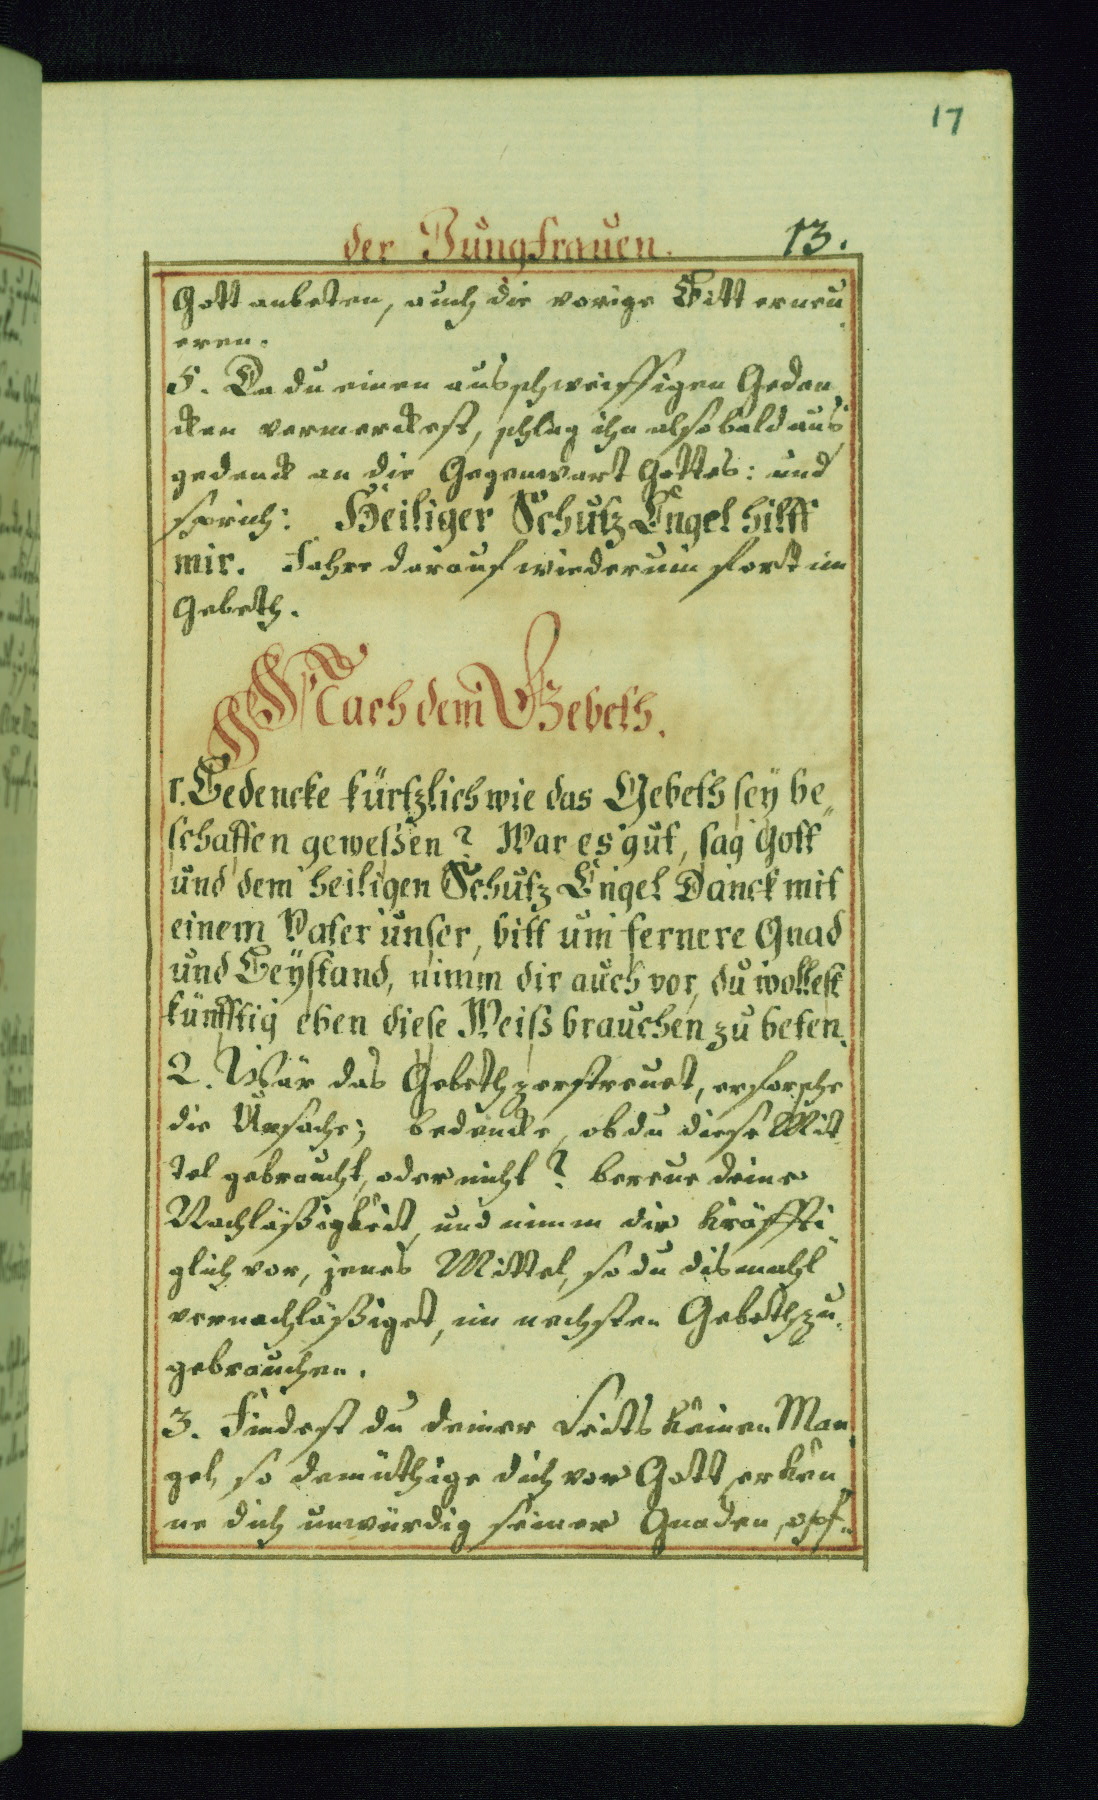 17
der Jungfrauen. 13.
Gott anbeten, auch die vorige Bitt erneu
eren.
5. Da du einen ausschweiffigen Gedan
cken vermerckest, schlag ihn alsobald aus
gedenck an die Gegenwart Gottes: und
sprich: Heiliger Schutz Engel hilff
mir. Fahre darauf wiederum fort im
Gebeth.
Nach dem Gebeth.
1. Bedencke kürtzlich wie das Gebeth seÿ be„
schaffen geweßen? War es gut, sag Gott
und dem heiligen Schutz Engel Danck mit
einem Vater unser, bitt um fernere Gnad
und Beÿstand, nimm dir auch vor, du wollest
künfftig eben diese Weiß brauchen zu beten.
2. Wär das Gebeth zerstreuet, erforsche
die Ursache; bedencke, ob du diese Mit
tel gebraucht, oder nicht? bereue deine
Nachläßigkeit, und nimm dir kräffti
glich vor, jenes Mittel, so du dismahl
vernachläßiget, im nechsten Gebeth zu
gebrauchen.
3. Findest du deiner Seits keinen Man
gel, so demüthige dich vor Gott, erken
ne dich unwürdig seiner Gnaden, opf„